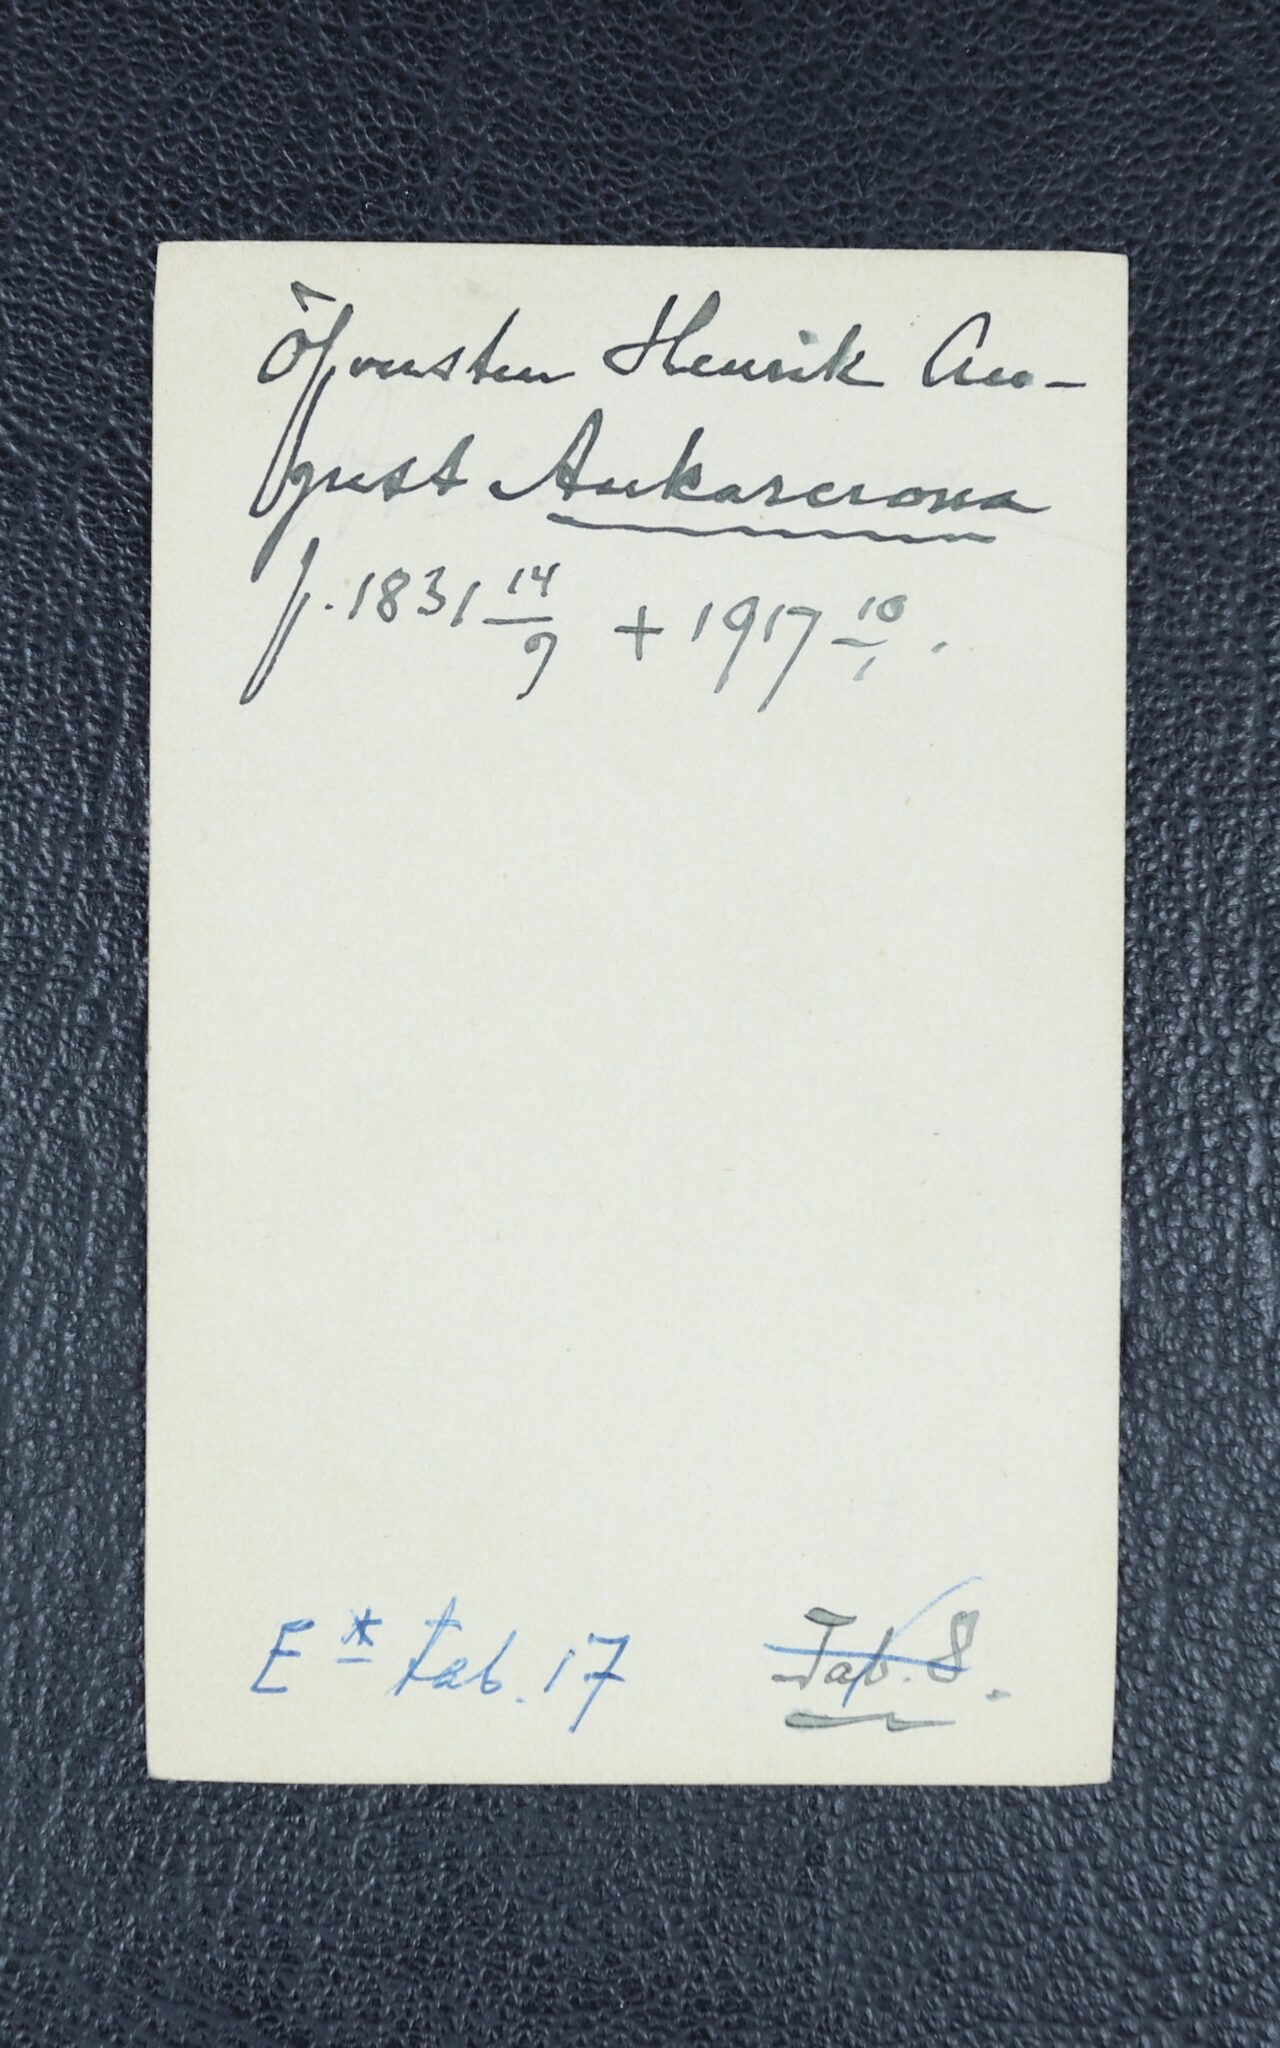 Öfversten Henrik Au-
gust Ankarcrona
f. 1831 14/9 + 1917 10/1.
E* tab. 17 Tab. 8.